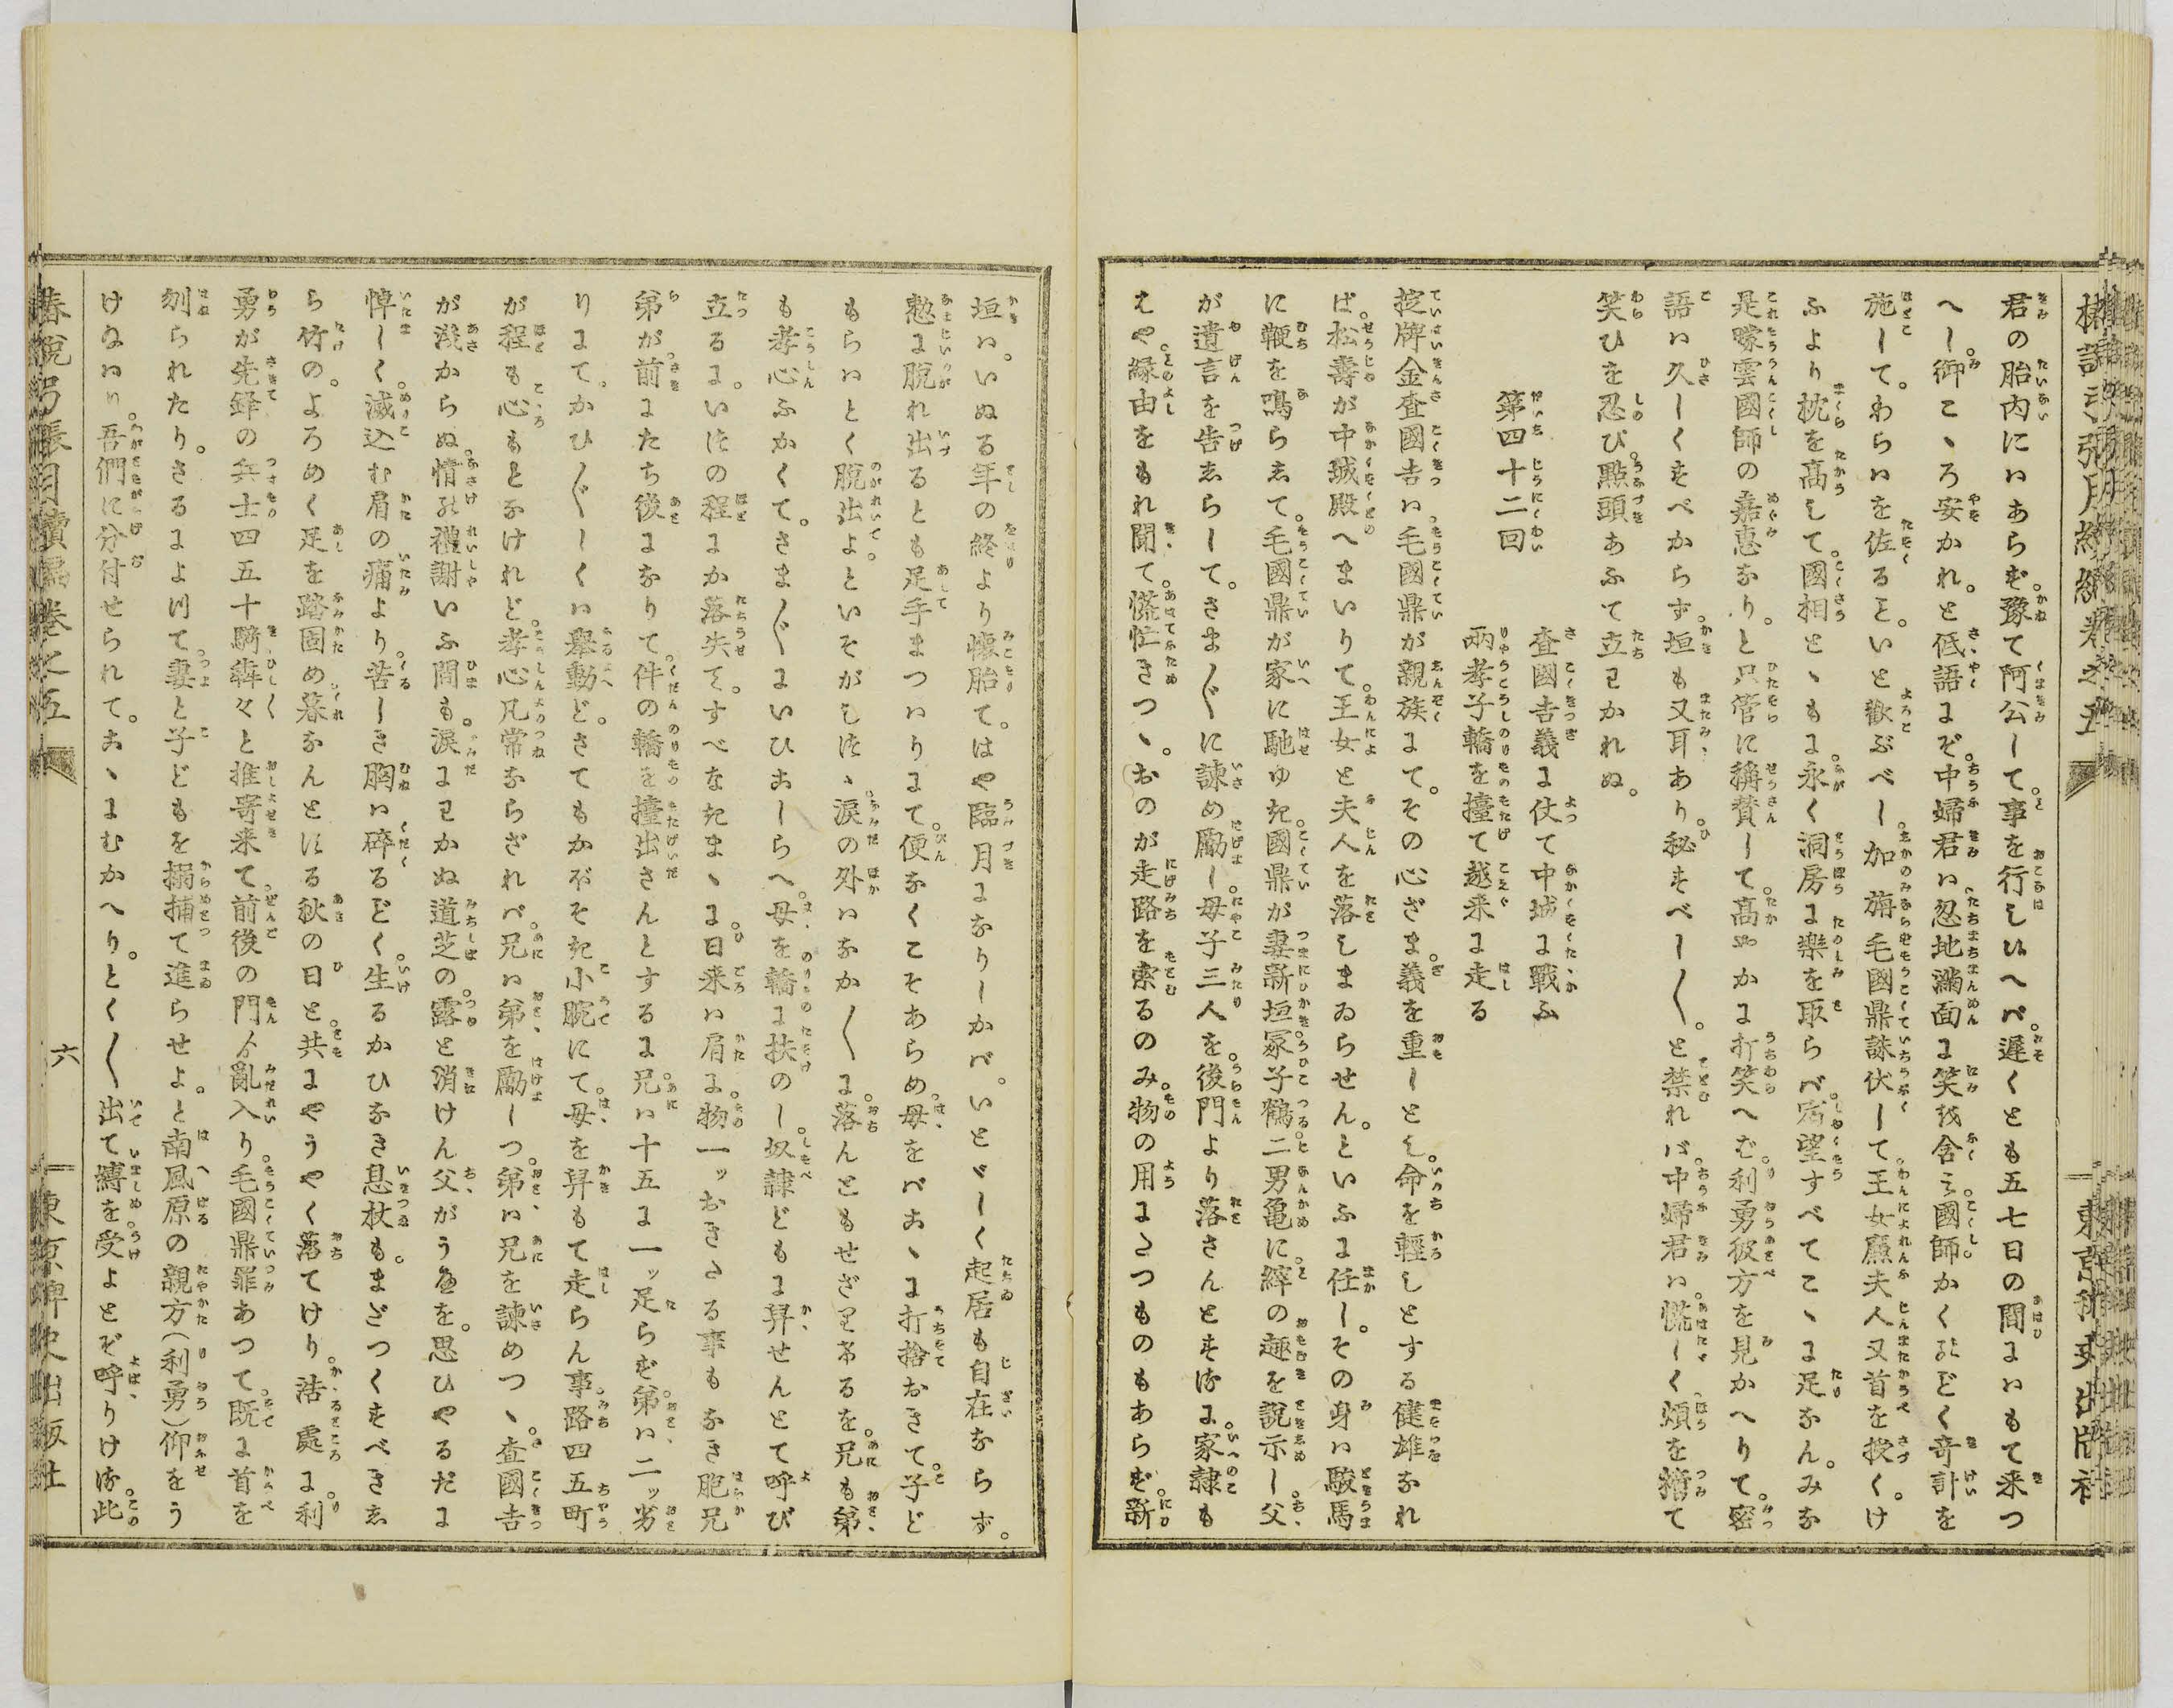 君の胎内にハあらず。豫て阿公して。事を行しハヘバ。遅くとも五七日の間にハもて来つ
へし。御こゝろ安かれ。と低語にぞ。中婦君ハ忽地滿面に笑を含み。國師かくのごとく奇計を
施して。わらハを佐ると。いと歡ぶべし。加旃毛國鼎誅伏して。王女廉夫人又首を授く。け
ふより枕を高して。國相とゝもに。永く洞房に樂を取らバ。宿望すべてこゝに足なん。みな
是曚雲國師の嘉惠なり。と只管に稱賛して。髙やかに打笑へば。利勇彼方を見かへりて。密
語ハ久しくすべからず。垣も又耳あり。秘すべし〳〵。と禁れバ。中婦君ハ慌しく。頬を𢮦て
笑ひを忍び。點頭あふて立わかれぬ。
第四十二回
査國吉義に仗て中城に戰ふ
兩孝子轎を擡て越来に走る
掟牌金査國吉ハ。毛國鼎が親族にて。その心ざま。義を重しとし。命を輕しとする健雄なれ
ば。松壽が中城殿へまいりて。王女と夫人を落しまゐらせん。といふに任し。その身ハ駿馬
に鞭を鳴らして。毛國鼎が家に馳ゆき。國鼎が妻新垣。冢子鶴。二男亀に。縡の趣を説示し。父
が遺言を告しらして。さま〴〵に諫め勵し。母子三人を。後門より落さんとする に。家隷も
はや。縁由をもれ聞て。慌忙きつゝ。おのが走路を索るのみ。物の用にたつものもあらず。新
垣ハ。いぬる年の終より懷胎て。はや臨月になりしかバ。いとゞしく起居も自在ならず。
憗に脱れ出るとも足手まつハりにて。便なくこそあらめ。母をバこゝに打捨おきて。子ど
もらハとく脱出よ。といそがしつゝ。涙の外ハなか〳〵に。落んともせざりけるを。兄も弟
も孝心ふかくて。さま〴〵にいひこしらへ。母を轎に扶のし。奴隷どもに舁せんとて呼び
立るに。いつの程にか落失て。すべなきまゝに。日来ハ肩に。物一ッおきたる事もなき胞兄
弟が。前にたち後になりて。件の轎を擡出さんとするに。兄ハ十五に一ッ足らず。弟ハ二ッ劣
りにて。かひ〴〵しくハ舉動ど。さてもかぼそき小腕にて。母を舁もて走らん事。路四五町
が程も心もとなけれど。孝心凡常ならざれバ。兄ハ弟を勵しつ。弟ハ兄を諫めつゝ。査國吉
が淺からぬ。情の禮謝いふ間も。涙にわかぬ道芝の。露と消けん父がうへを。思ひやるだに
悼しく。滅込む肩の痛より。苦しき胸ハ碎るごとく。生るかひなき息杖も。まだつくすべきし
ら竹の。よろめく足を踏固め。暮なんとする秋の日と共に。やうやく落てけり。浩處に。利
勇が先鋒の兵士四五十騎。犇々と推寄来て。前後の門より亂入り。毛國鼎罪あつて。既に首を
刎られたり。さるによつて。妻と子どもを搦捕て進らせよ。と南風原の親方(利勇)仰をう
けぬハり。吾們に分付せられて。こゝにむかへり。とく〳〵出て縛を受よとぞ呼りける。此
六